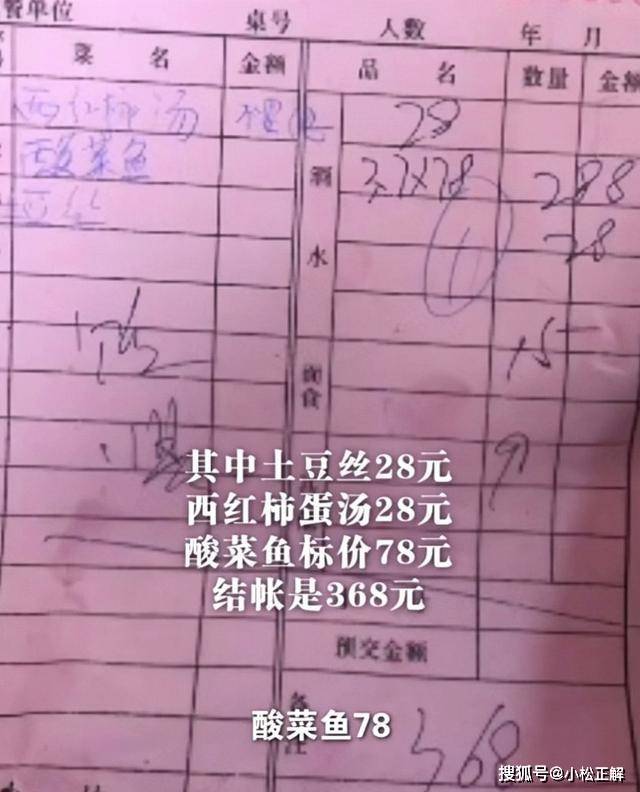 餐单位 桌号 人数 年 月
菜 名 金额 品 名 数量 金额
西红柿汤 28
酸菜鱼 3.7×78 288
豆丝 28
酒水
15
面食
9
其中土豆丝28元
西红柿蛋汤28元
酸菜鱼标价78元
结帐是368元
预交金额
备注
酸菜鱼78
368
搜狐号@小松正解